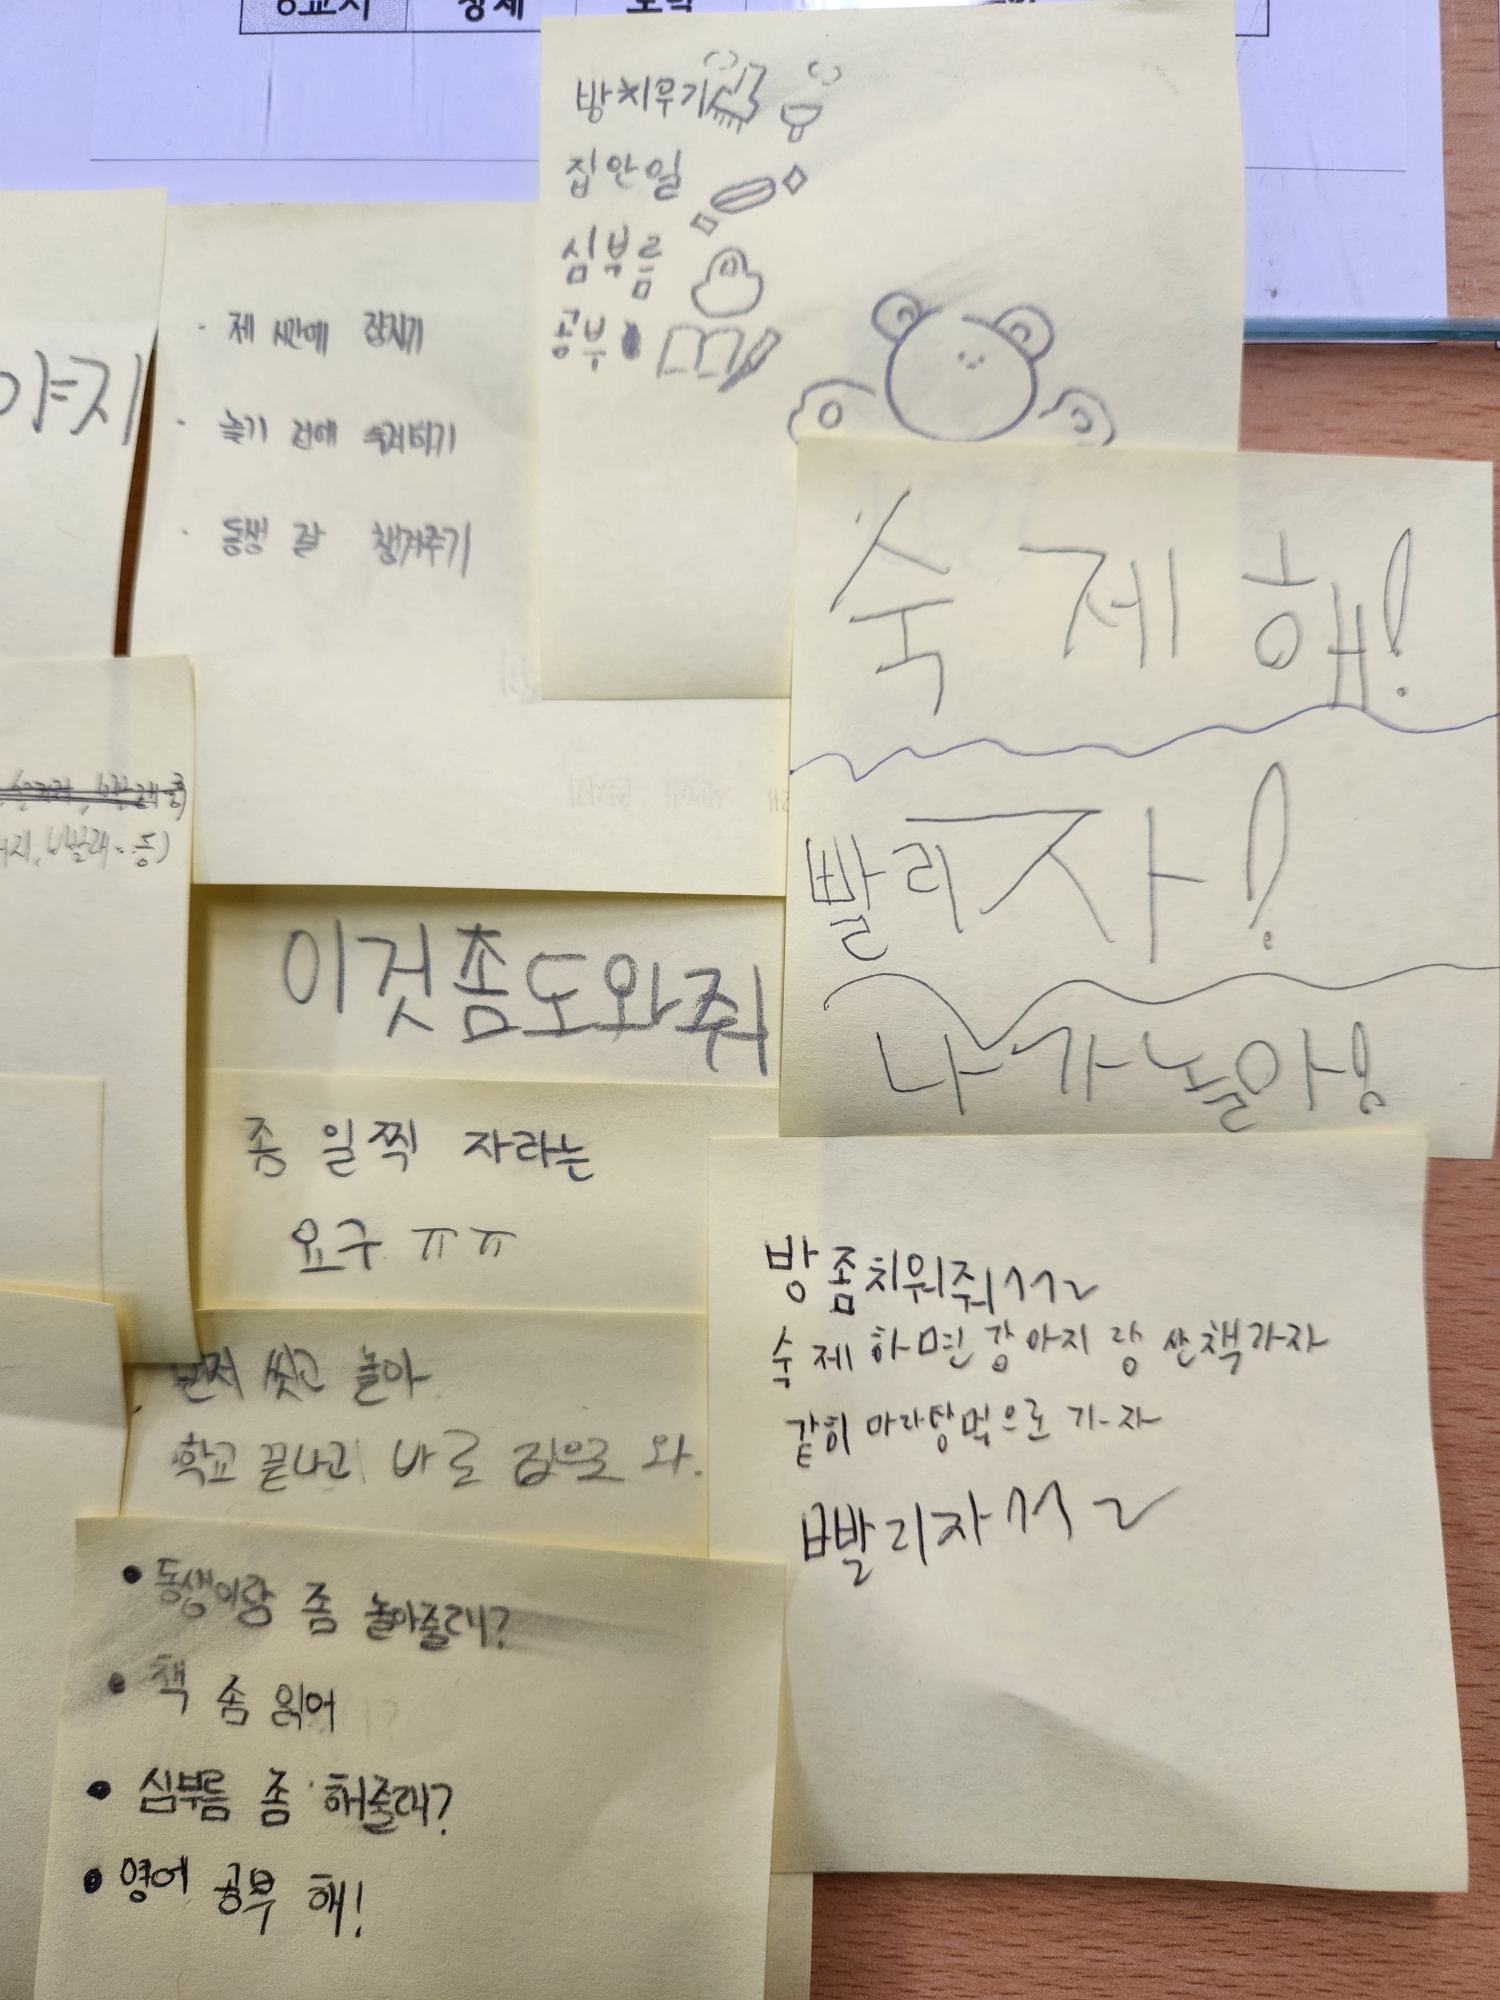 방치우기
집안일
심부름
공부
· 제 시간에 잠자기
· 놀기 전에 숙제하기
· 동생 잘 챙겨주기
야지
숙제해!
빨리자!
나가놀아!
빨래 등)
이것좀도와줘
좀 일찍 자라는
요구 ㅠㅠ
방좀치워줘^^~
숙제하면 강아지랑 산책가자
같히 마라탕먹으로 가자
빨리자^^~
먼저 씻고 놀아
학교 끝나고 바로 집으로 와.
• 동생이랑 좀 놀아줄래?
• 책 좀 읽어
• 심부름 좀 해줄래?
• 영어 공부 해!